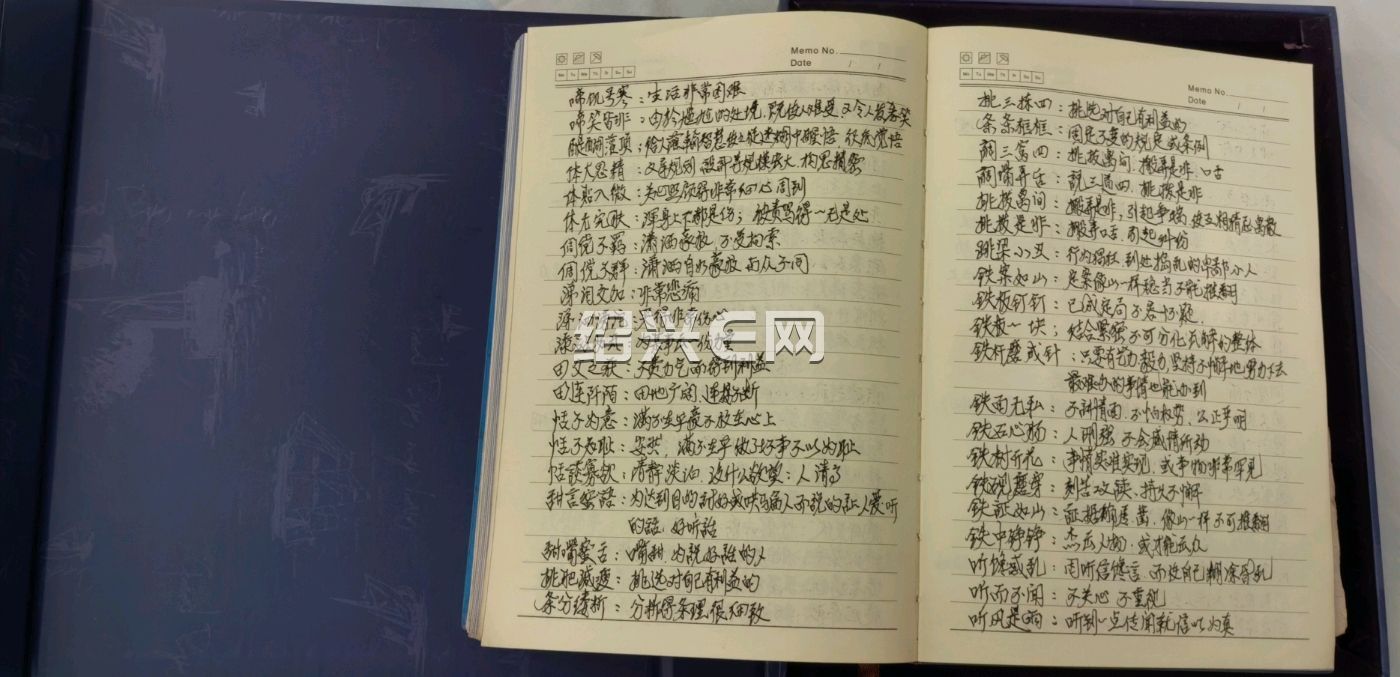 Memo No.
Date / /
Mo Tu We Th Fr Sa Su
啼饥号寒：生活非常困难
啼笑皆非：由於尴尬的处境，既使人难受又令人发笑
醍醐灌顶：给人灌输智慧使之从迷糊中醒悟 彻底觉悟
体大思精：规划 规模宏大 构思精密
体贴入微：关心照顾得非常细心周到
体无完肤：浑身上下都是伤；被责骂得一无是处
倜傥不羁：潇洒豪放，不受拘束
倜傥不群：潇洒自如豪放 与众不同
涕泪交加：非常悲痛
绍兴E网
田父之获：不费力气而得到利益
田连阡陌：田地广阔，连接不断
恬不为意：满不在乎毫不放在心上
恬不知耻：安然，满不在乎做了坏事不以为耻
恬谈寡欲：清静淡泊 没什么欲望：人清高
甜言蜜語：为达到目的讨好或哄骗人而說的让人爱听
的話、好听話
甜嘴蜜舌：嘴甜 为說好話的人
挑肥减瘦：挑选对自己有利益的
条分缕析：分析得条理很细致
Mo Tu We Th Fr Sa Su
Memo No.
Date / /
挑三拣四：挑选对自己有利益的
条条框框：固定不变的规定或条例
調三窝四：挑拨离间，搬弄是非、口舌
調嘴弄舌：說三道四，挑拨是非
挑拨离间：搬弄是非，引起争端，使互相猜忌离散
挑拨是非：搬弄口舌，引起纠纷
跳梁小丑：行为猖狂，到处捣乱的卑鄙小人
铁案如山：定案像山一样稳当不能推翻
铁板钉钉：已成定局不容怀疑
铁板一块：结合紧密不可分化瓦解的整体
铁杵磨成针：只要有毅力坚持不懈地努力下去
最难办的事情也能办到
铁面无私：不讲情面，不怕权势，公正严明
铁石心肠：人刚强 不会感情所动
铁树开花：事情实难实现，或事物非常罕见
铁砚磨穿：刻苦攻读、持久不懈
铁証如山：証据确凿，像山一样不可推翻
铁中铮铮：杰出人物，或才能出众
听馋惑乱：因听信馋言，而使自己糊涂昏乱
听而不闻：不关心 不重视
听风是雨：听到一点传闻就信以为真